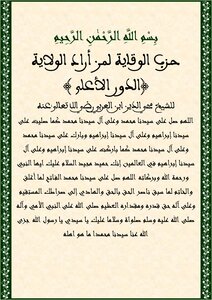 بِسْمِ اللَّهِ الرَّحْمَٰنِ الرَّحِيمِ
حزب الوقاية لمن أراد الولاية
﴿الدور الأعلى﴾
للشيخ محي الدين ابن العربي رضي الله تعالى عنه
اللهم صل على سيدنا محمد وعلى آل سيدنا محمد كما صليت على
سيدنا إبراهيم وعلى آل سيدنا إبراهيم وبارك على سيدنا محمد
وعلى آل سيدنا محمد كما باركت على سيدنا إبراهيم وعلى آل
سيدنا إبراهيم في العالمين إنك حميد مجيد السلام عليك أيها النبي
ورحمة الله وبركاته اللهم صل على سيدنا محمد الفاتح لما أغلق
والخاتم لما سبق ناصر الحق بالحق والهادي إلى صراطك المستقيم
وعلى آله حق قدره ومقداره العظيم صلى الله على النبي الأمي وآله
صلى الله عليه وسلم صلواة وسلاما عليك يا سيدي يا رسول الله جزى
الله عنا سيدنا محمدا ما هو أهله